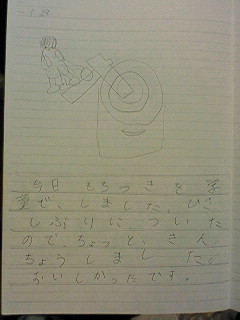 今日もちつきを学
童で、しました。ひさ
しぶりに、ついた
ので、ちょっと、きん
ちょうしました。
おいしかったです。